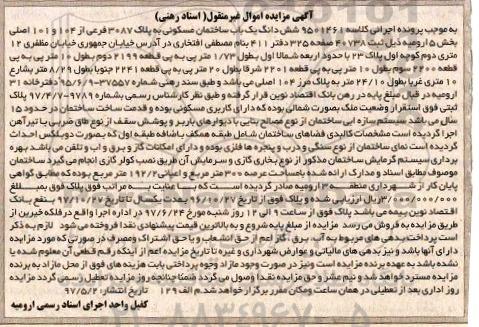 آگهی مزایده اموال غیرمنقول( اسناد رهنی)
به موجب پرونده اجرائی کلاسه ۹۵۰۱۴۶۱ شش دانگ یک باب ساختمان مسکونی به پلاک ۳۰۸۷ فرعی از ۱۰۴ و ۱۰۱ اصلی
بخش ۵ ارومیه ذیل ثبت ۴۰۷۳۸ صفحه ۳۲۵ دفتر ۴۱۱ بنام مصطفی افتخاری در آدرس خیابان جمهوری خیابان مظفری ۱۲
متری دوم کوچه اول پلاک ۲۳ با حدود اربعه شمالا اول بطول ۱/۷۳ متر پی به پی قطعه ۲۱۹۹ دوم بطول ۱۰ متر پی به پی
قطعه ۲۲۰۰ سوم بطول ۱۰ متر پی به پی قطعه ۲۲۰۱ شرقا بطول ۲۰ متر پی به پی قطعه ۲۲۴۱ جنوبا بطول ۸/۲۹ متر بشارع
۱۰ متری غربا بطول ۲۴/۱۰ متر به پلاک مرز ۱۰۴ اصلی می باشد و طبق سند رهنی شماره ۹۵/۶/۹-۲۷۵۵۷ دفترخانه ۳۱
ارومیه در قبال مبلغ فوق در رهن بانک اقتصاد نوین قرار گرفته و طبق نظر کارشناس رسمی بشماره ۹۷۸۹-۹۷/۴/۷ پلاک
ثبتی فوق استقرار وضعیت ملک بصورت شمالی بوده که دارای کاربری مسکونی بوده و قدمت ساخت ساختمان در حدود ۱۵
سال می باشد سیستم سازه ایی ساختمان از نوع مصالح بنایی با دیوارهای باربر و پوشش سقف از نوع طاق ضربی با تیرآهن
اجرا گردیده است مشخصات کالبدی فضاهای ساختمان شامل طبقه همکف باضافه طبقه اول که بصورت دوبلکس احداث
گردیده است نمای ساختمان از نوع سنگی و درب و پنجره ها فلزی بوده و دارای امکانات گاز و برق و اب و تلفن می باشد بهره
برداری سیستم گرمایش ساختمان مذکور از نوع بخاری گازی و سرمایش آن طریق نصب کولر گازی انجام می گیرد ساختمان
موصوف مطابق اسناد و مدارک ارائه شده بامساحت عرصه ۲۰۰ متر مربع و اعیانی ۱۹۲/۲ متر مربع بوده که مطابق گواهی
پایان کار از شهرداری منطقه ۳ ارومیه صادر گردیده است که بنا عنایت به مراتب فوق پلاک فوق بمبلغ
۳/۰۰۰/۰۰۰/۰۰۰ ریال ارزیابی شده و پلاک فوق از تاریخ ۹۶/۱۰/۲۷ بمدت یکسال تا تاریخ ۹۷/۱۰/۲۷ بنفع بانک
اقتصاد نوین بیمه می باشد پلاک فوق از ساعت ۹ الی ۱۲ روز شنبه مورخ ۹۷/۶/۲۴ در اداره اجرا واقع در فلکه خیرین از
طریق مزایده به فروش می رسد مزایده از مبلغ پایه شروع و به بالاترین قیمت پیشنهادی نقدا فروخته می شود لازم به ذکر
است پرداخت بدهی های مربوط به آب، برق، گاز اعم از حق انشعاب و یا حق اشتراک و مصرف در صورتی که مورد مزایده
دارای آنها باشد و نیز بدهی های مالیاتی و عوارض شهرداری و غیره تا تاریخ مزایده اعم از اینکه رقم قطعی آن معلوم شده یا
نشده باشد به عهده برنده مزایده است و نیز در صورت وجود مازاد وجوه پرداختی بابت هزینه های فوق از محل مازاد به برنده
مزایده مسترد خواهد شد و نیم عشر و حق مزایده نقدا وصول می گردد ضمنا چنانچه روز مزایده تعطیل رسمی گردد مزایده
روز اداری بعد از تعطیلی در همان ساعت و مکان مقرر برگزار خواهد شد. م الف ۱۲۹ تاریخ انتشار: ۹۷/۵/۲۰
کفیل واحد اجرای اسناد رسمی ارومیه